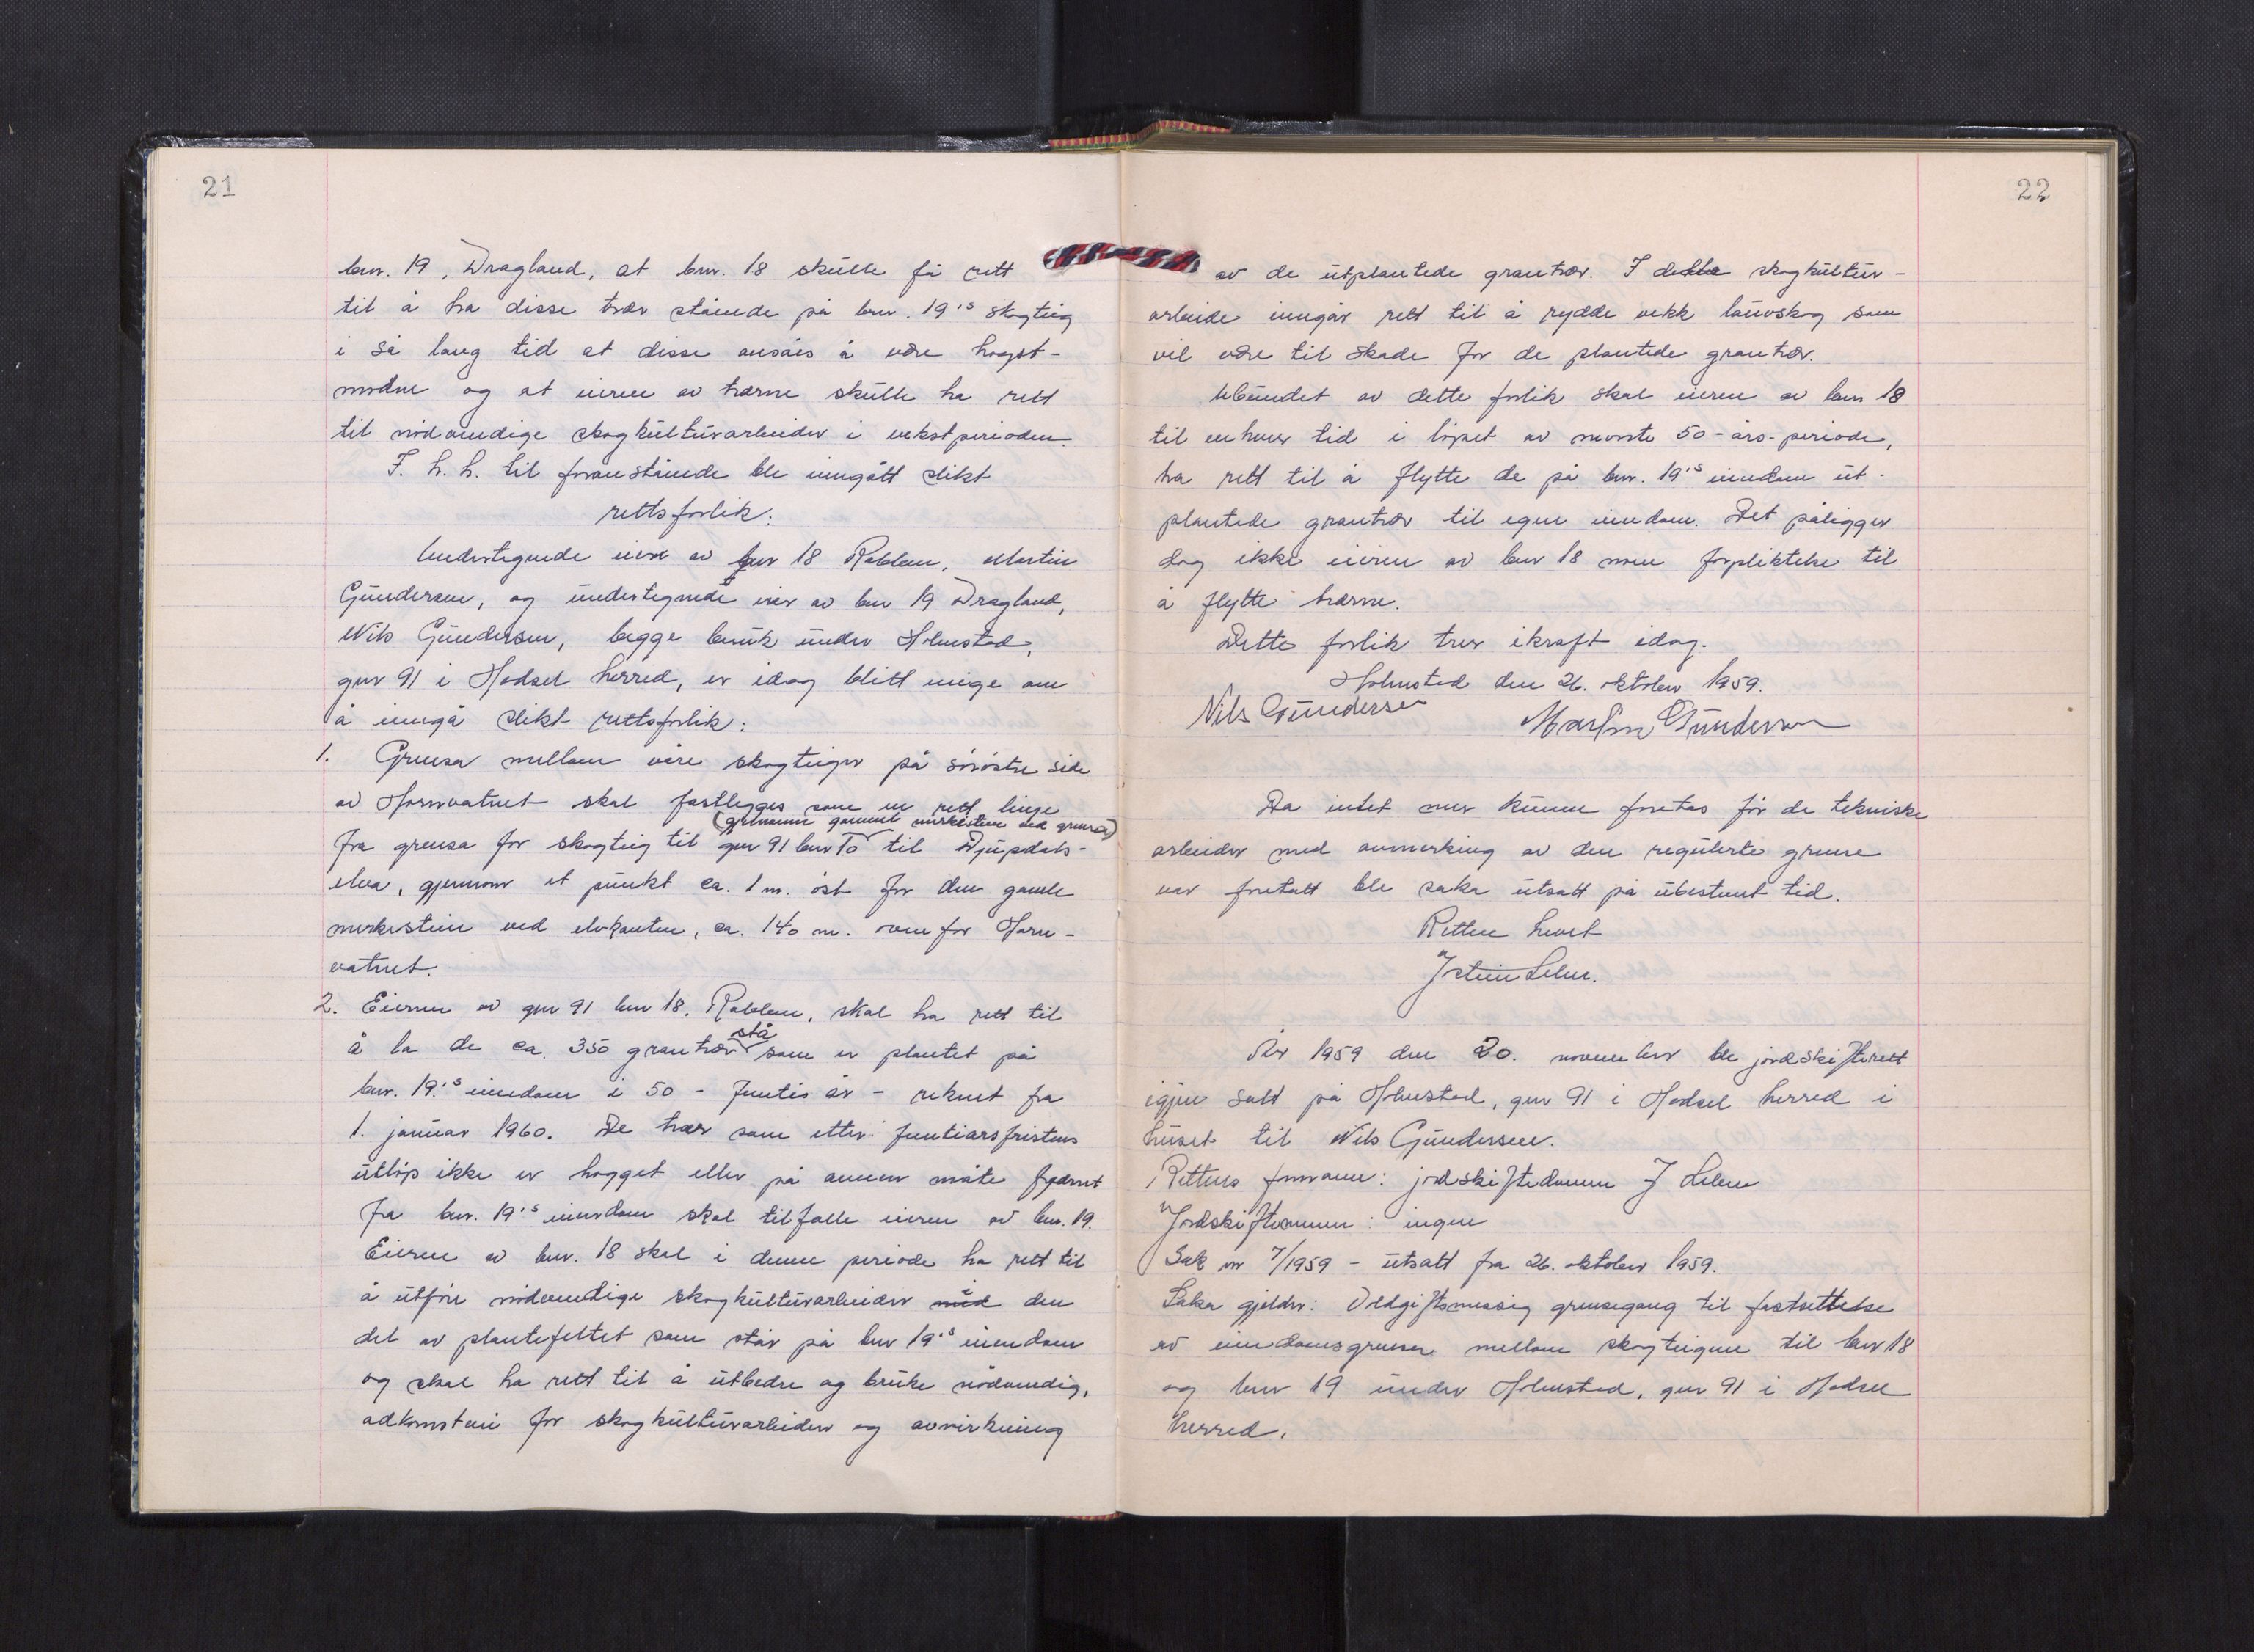 21
bnr. 19, Dragland, at bnr. 18 skulle få rett
til å ha disse trær stående på bnr. 19's skogteig
i så lang tid at disse ansåes å være hogst-
modne og at eieren av trærne skulle ha rett
til nødvendige skogkulturarbeider i vekstperioden.
I. h. h. til foranstående ble inngått slikt
rettsforlik:
Undertegnede eier av bnr 18 Rabben, Martin
Gundersen, og undertegnede eier av bnr 19 Dragland,
Nils Gundersen, begge bruk under Holmstad,
gnr 91 i Hadsel herred, er idag blitt enige om
å inngå slikt rettsforlik:
1. Grensa mellom våre skogteiger på sørøstre side
av Hornvatnet skal fastlegges som en rett linje
(gjennom gammel merkestein ved grensa)
fra grensa for skogteig til gnr 91 bnr 10 til Djupdals-
elva, gjennom et punkt ca. 1 m. øst for den gamle
merkestein ved elvkanten, ca. 140 m. ovenfor Horn-
vatnet.
2. Eieren av gnr 91 bnr 18. Rabben, skal ha rett til
stå
å la de ca. 350 grantrær som er plantet på
bnr. 19's eiendom i 50 - femti år - reknet fra
1. januar 1960. De trær som etter femtiårsfristens
utløp ikke er hogget eller på annen måte fjernet
fra bnr. 19's eiendom skal tilfalle eieren av bnr. 19.
Eieren av bnr. 18 skal i denne periode ha rett til
å utføre nødvendige skogkulturarbeider med i den
del av plantefeltet som står på bnr 19's eiendom
og skal ha rett til å utbedre og bruke nødvendig,
adkomstvei for skogkulturarbeider og avvirkning
22
av de utplantede grantrær. I dette skogkultur-
arbeide inngår rett til å rydde vekk lauvskog som
vil være til skade for de plantede grantrær.
Ubundet av dette forlik skal eieren av bnr 18
til enhver tid i løpet av nevnte 50-års-periode,
ha rett til å flytte de på bnr. 19's eiendom ut-
plantede grantrær til egen eiendom. Det påligger
dog ikke eieren av bnr 18 noen forpliktelse til
å flytte trærne.
Dette forlik trer ikraft idag.
Holmstad den 26. oktober 1959.
Nils Gundersen
Martin Gundersen
Da intet mer kunne foretas før de tekniske
arbeider med avmerking av den regulerte grense
var foretatt ble saka utsatt på ubestemt tid.
Retten hevet
J
År 1959 den 20. november ble jordskifterett
igjen satt på Holmstad, gnr 91 i Hadsel herred i
huset til Nils Gundersen.
Rettens formann: jordskiftedommer J
Jordskiftemenn: ingen
Sak nr 7/1959 - utsatt fra 26. oktober 1959.
Saka gjelder: Voldgiftsmessig grensegang til fastsettelse
av eiendomsgrensen mellom skogteigene til bnr 18
og bnr 19 under Holmstad, gnr 91 i Hadsel
herred.